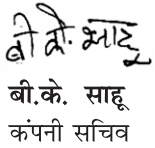 बी.के. साहू
बी.के. साहू
कंपनी सचिव